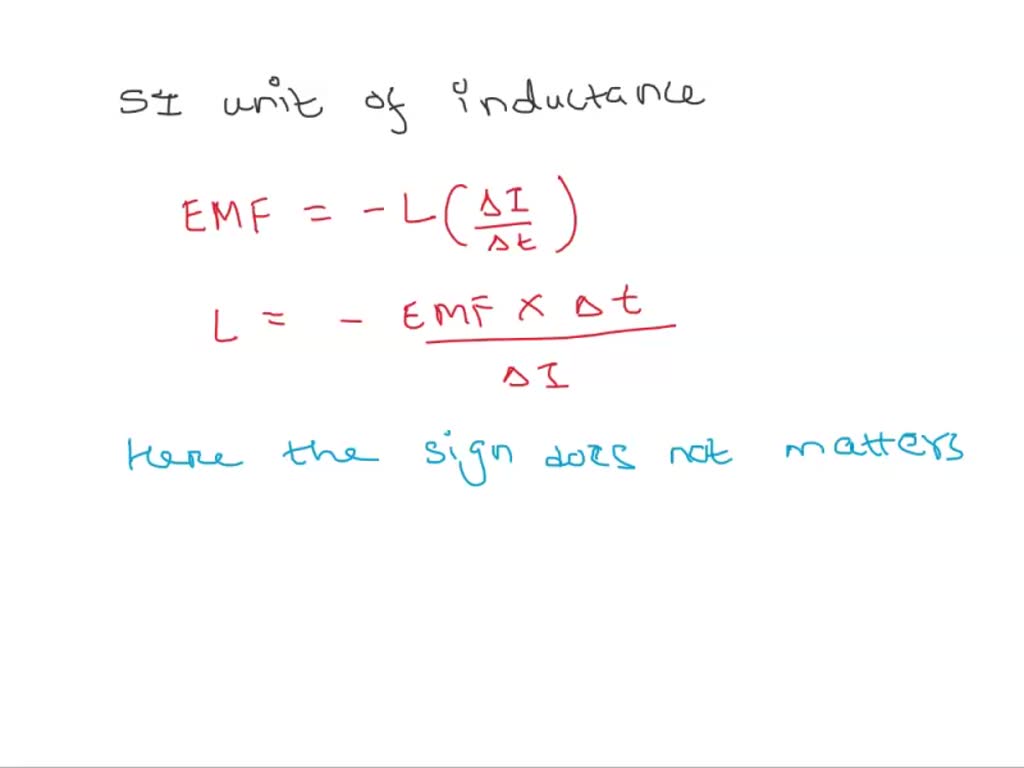 SI unit of inductance
EMF = - L (ΔI/Δt)
L = - EMF × Δt / ΔI
Here the sign does not matters